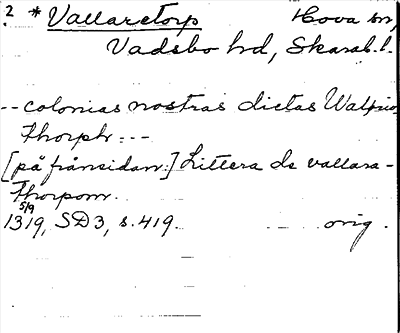 ? * Vallaretorp Hova sn,
Vadsbo hd, Skarab. l.
-- colonias nostras dictas Walprio-
thorph: --
[på frånsidan:] Littera de vallara-
thorpom.
5/9
1319, SD3, s. 419. orig.